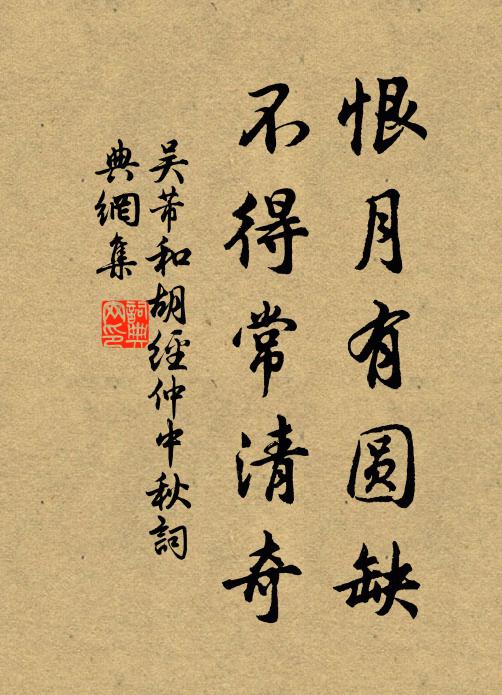 恨月有圆缺
不得常清奇
吴芾和胡經仲中秋詞
典網集
詞典
网印